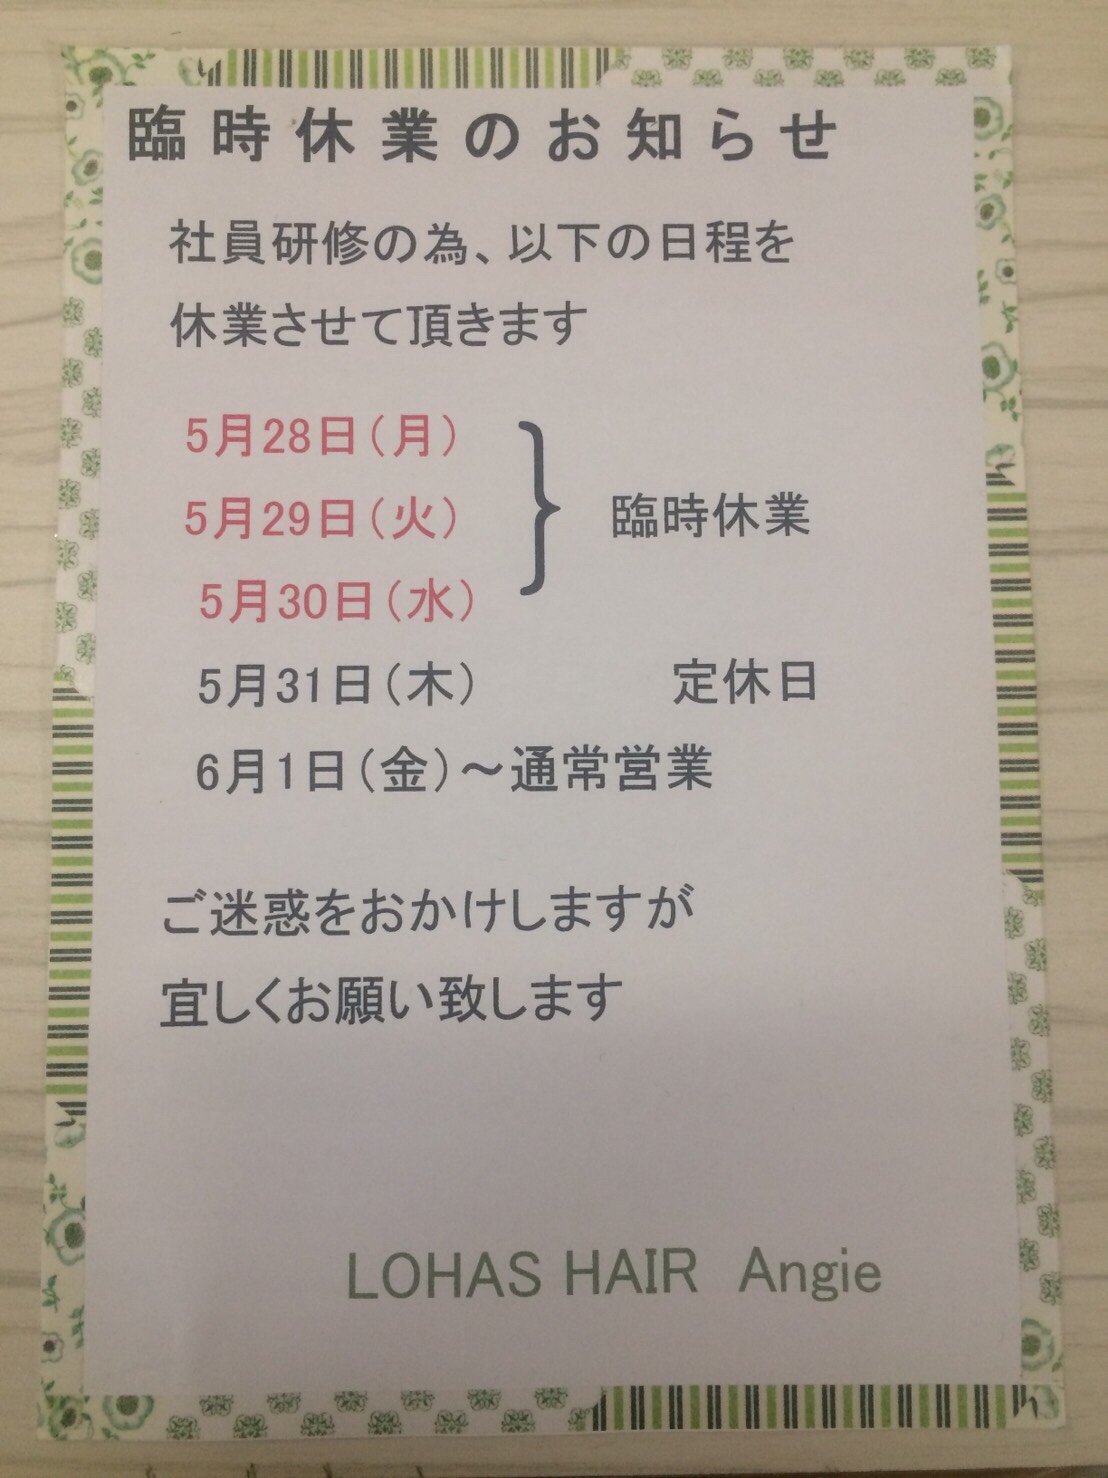 臨時休業のお知らせ
社員研修の為、以下の日程を
休業させて頂きます
5月28日(月)
5月29日(火) 臨時休業
5月30日(水)
5月31日(木) 定休日
6月1日(金)～通常営業
ご迷惑をおかけしますが
宜しくお願い致します
LOHAS HAIR Angie